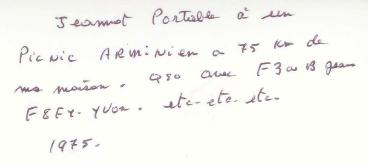 Jeannot Portable à un
Picnic ARMINIEN a 75 km de
ma maison. QSO avec F3
F8FY. YVON. etc-etc-etc.
1975.